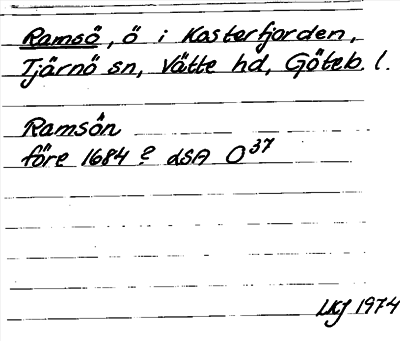 Ramsö, ö i Kosterfjorden,
Tjärnö sn, Vätte hd, Göteb. l.
Ramsön
före 1684? LSA O37
LKJ 1974